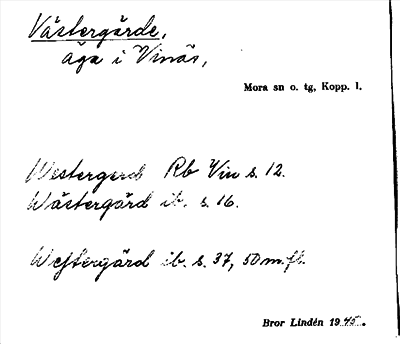 Västergärde,
äga i Vinäs,
Mora sn o. tg, Kopp. l.
Westergerd Rb Vin s. 12.
Wästergärd ib. s. 16.
Westergärd ib. s. 37, 50 m.fl.
Bror Lindén 1945.